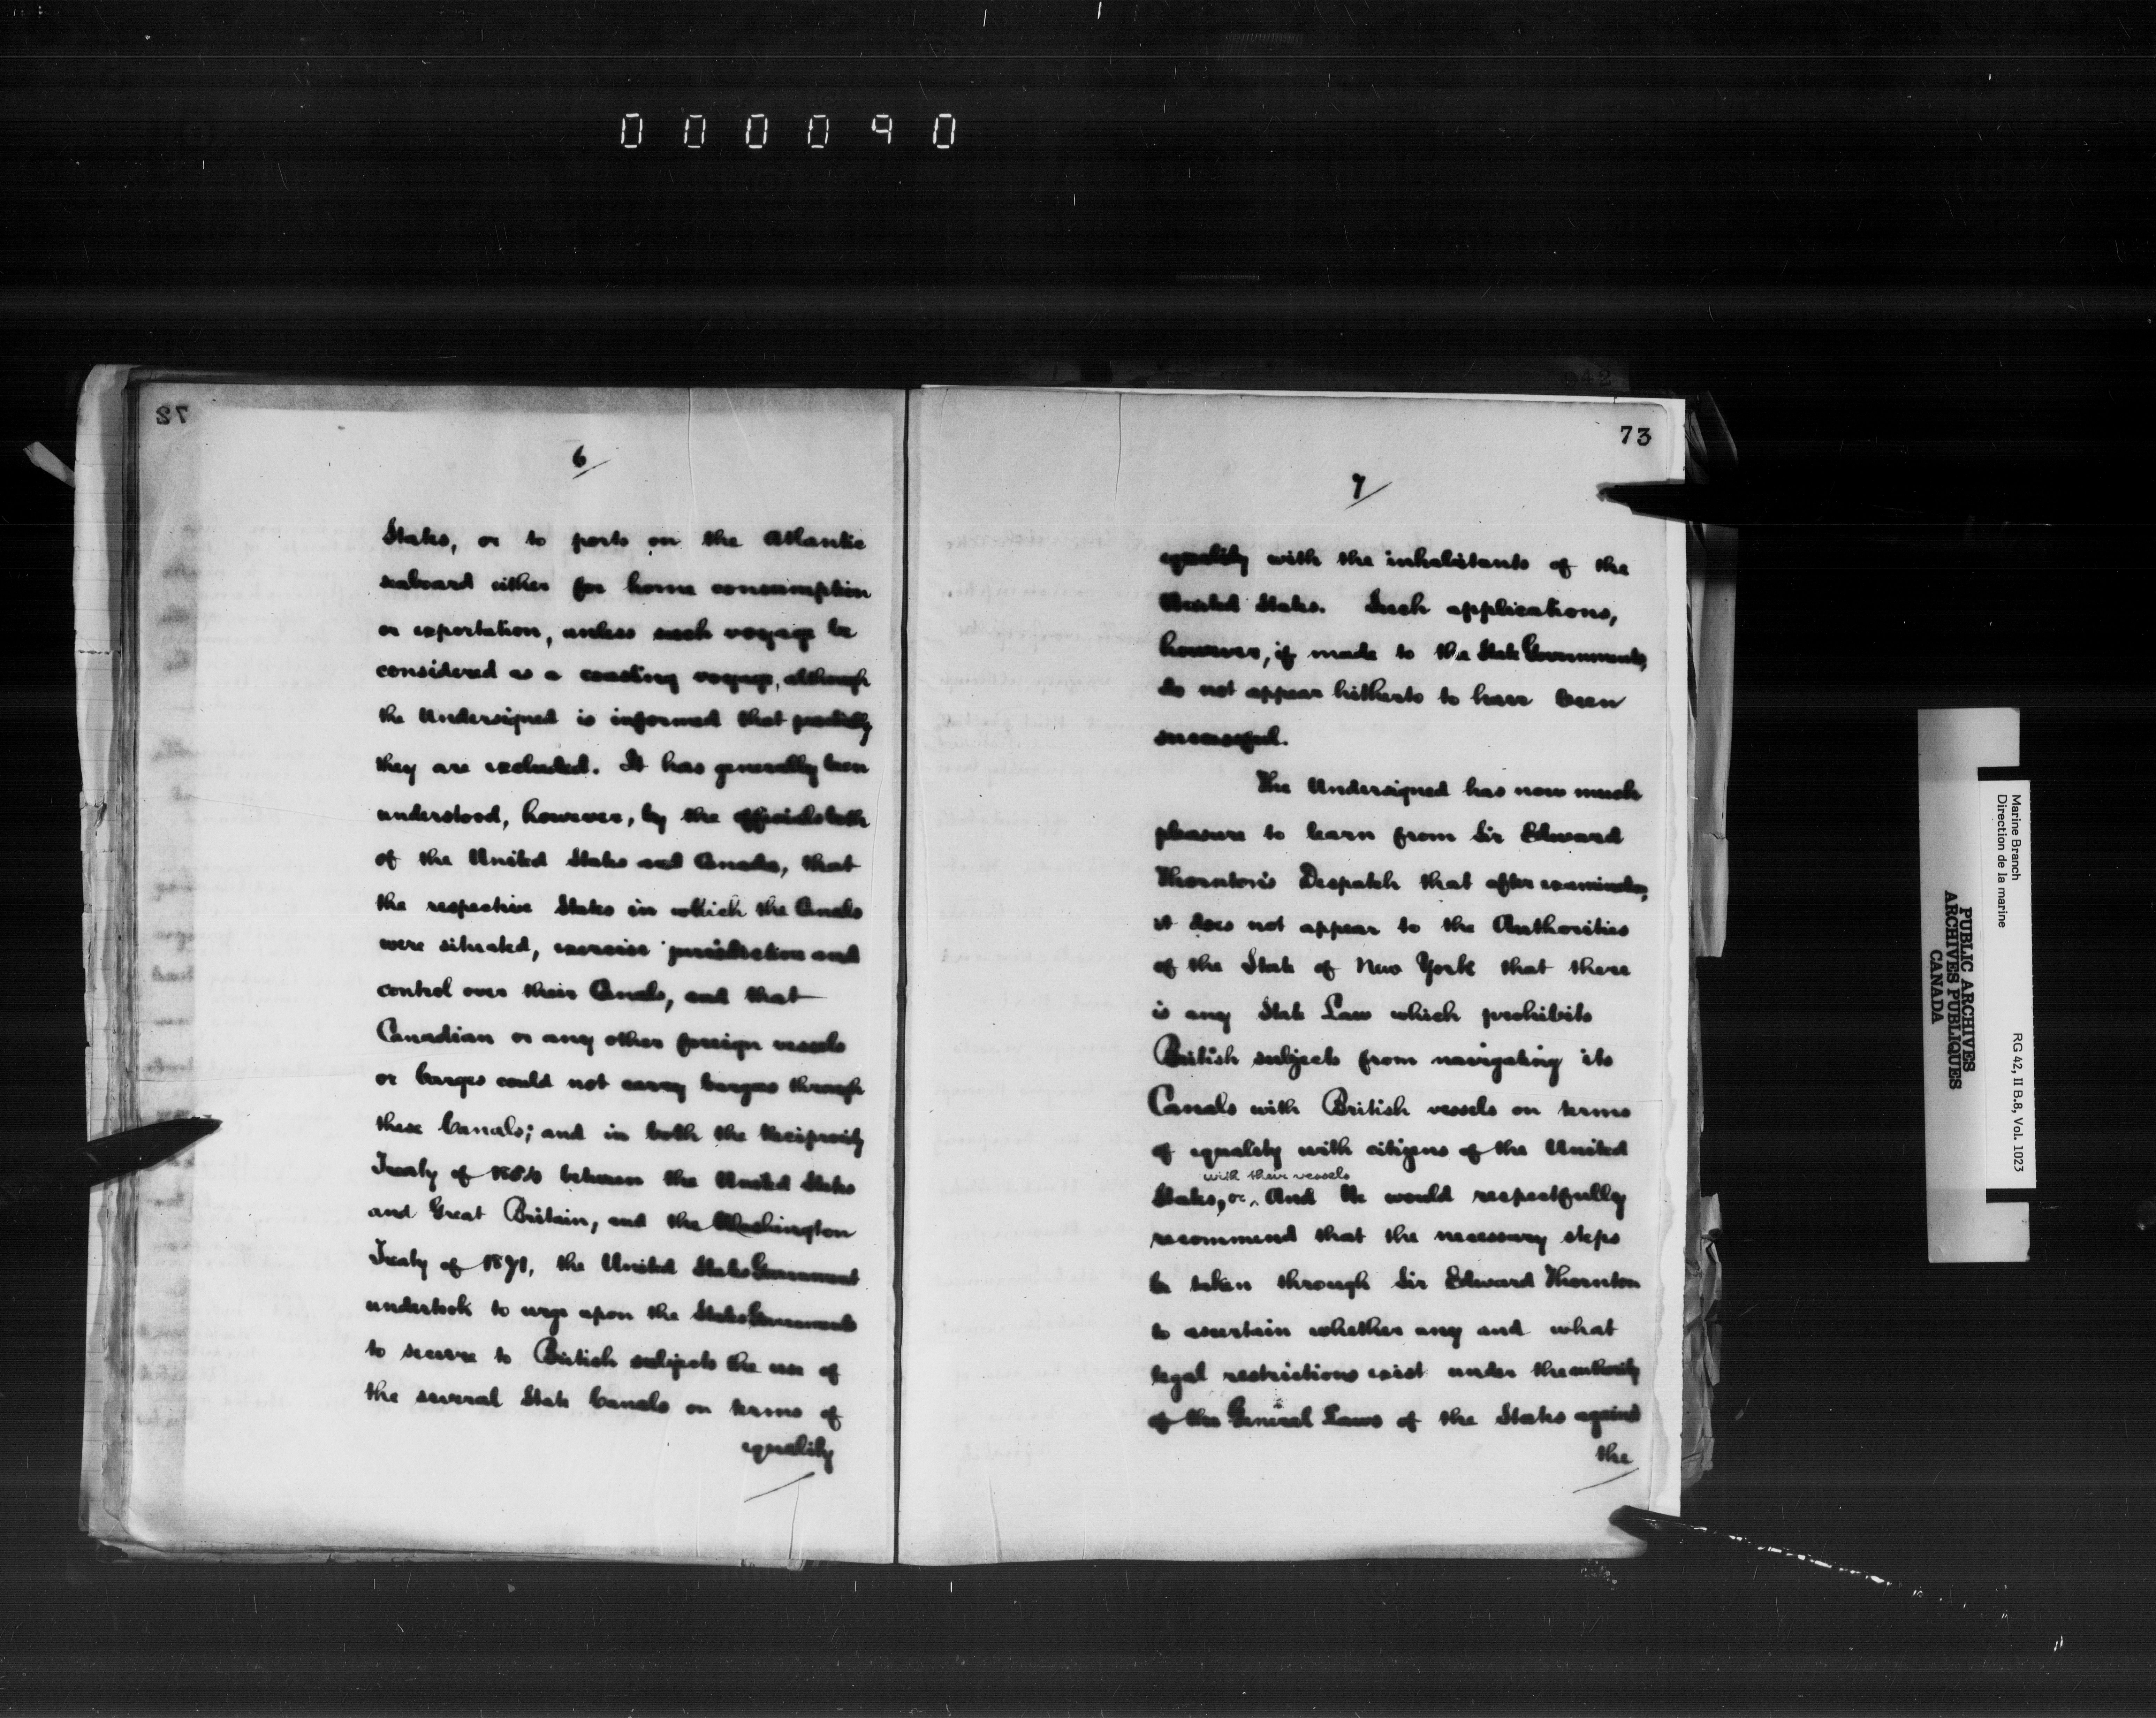 000090
72
6
States, or to ports on the Atlantic
seaboard either for home consumption
or exportation, unless such voyage be
considered as a coasting voyage, although
the Undersigned is informed that practically
they are excluded. It has generally been
understood, however, by the officials both
of the United States and Canada, that
the respective States in which the Canals
were situated, exercise jurisdiction and
control over their Canals, and that
Canadian or any other foreign vessels
or barges could not carry cargoes through
these Canals; and in both the Reciprocity
Treaty of 1854 between the United States
and Great Britain, and the Washington
Treaty of 1871, the United States Government
undertook to urge upon the States Governments
to secure to British subjects the use of
the several State Canals on terms of
equality
942
73
7
equality with the inhabitants of the
United States. Such applications,
however, if made to the State Governments,
do not appear hitherto to have been
successful.
The Undersigned has now much
pleasure to learn from Sir Edward
Thornton's Despatch that after examination,
it does not appear to the Authorities
of the State of New York that there
is any State Law which prohibits
British subjects from navigating its
Canals with British vessels on terms
of equality with citizens of the United
with their vessels
States, And He would respectfully
recommend that the necessary steps
be taken through Sir Edward Thornton
to ascertain whether any and what
legal restrictions exist under the authority
of the General Laws of the States against
the
Marine Branch
Direction de la marine
RG 42, II B.8, Vol. 1023
PUBLIC ARCHIVES
ARCHIVES PUBLIQUES
CANADA